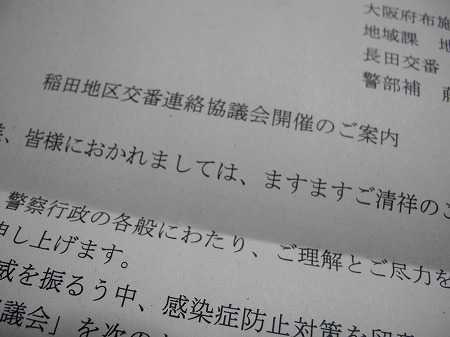 大阪府布施
地域課 地
長田交番
警部補
稲田地区交番連絡協議会開催のご案内
、皆様におかれましては、ますますご清祥のこ
警察行政の各般にわたり、ご理解とご尽力を
申し上げます。
威を振るう中、感染症防止対策を留意
議会」を次の